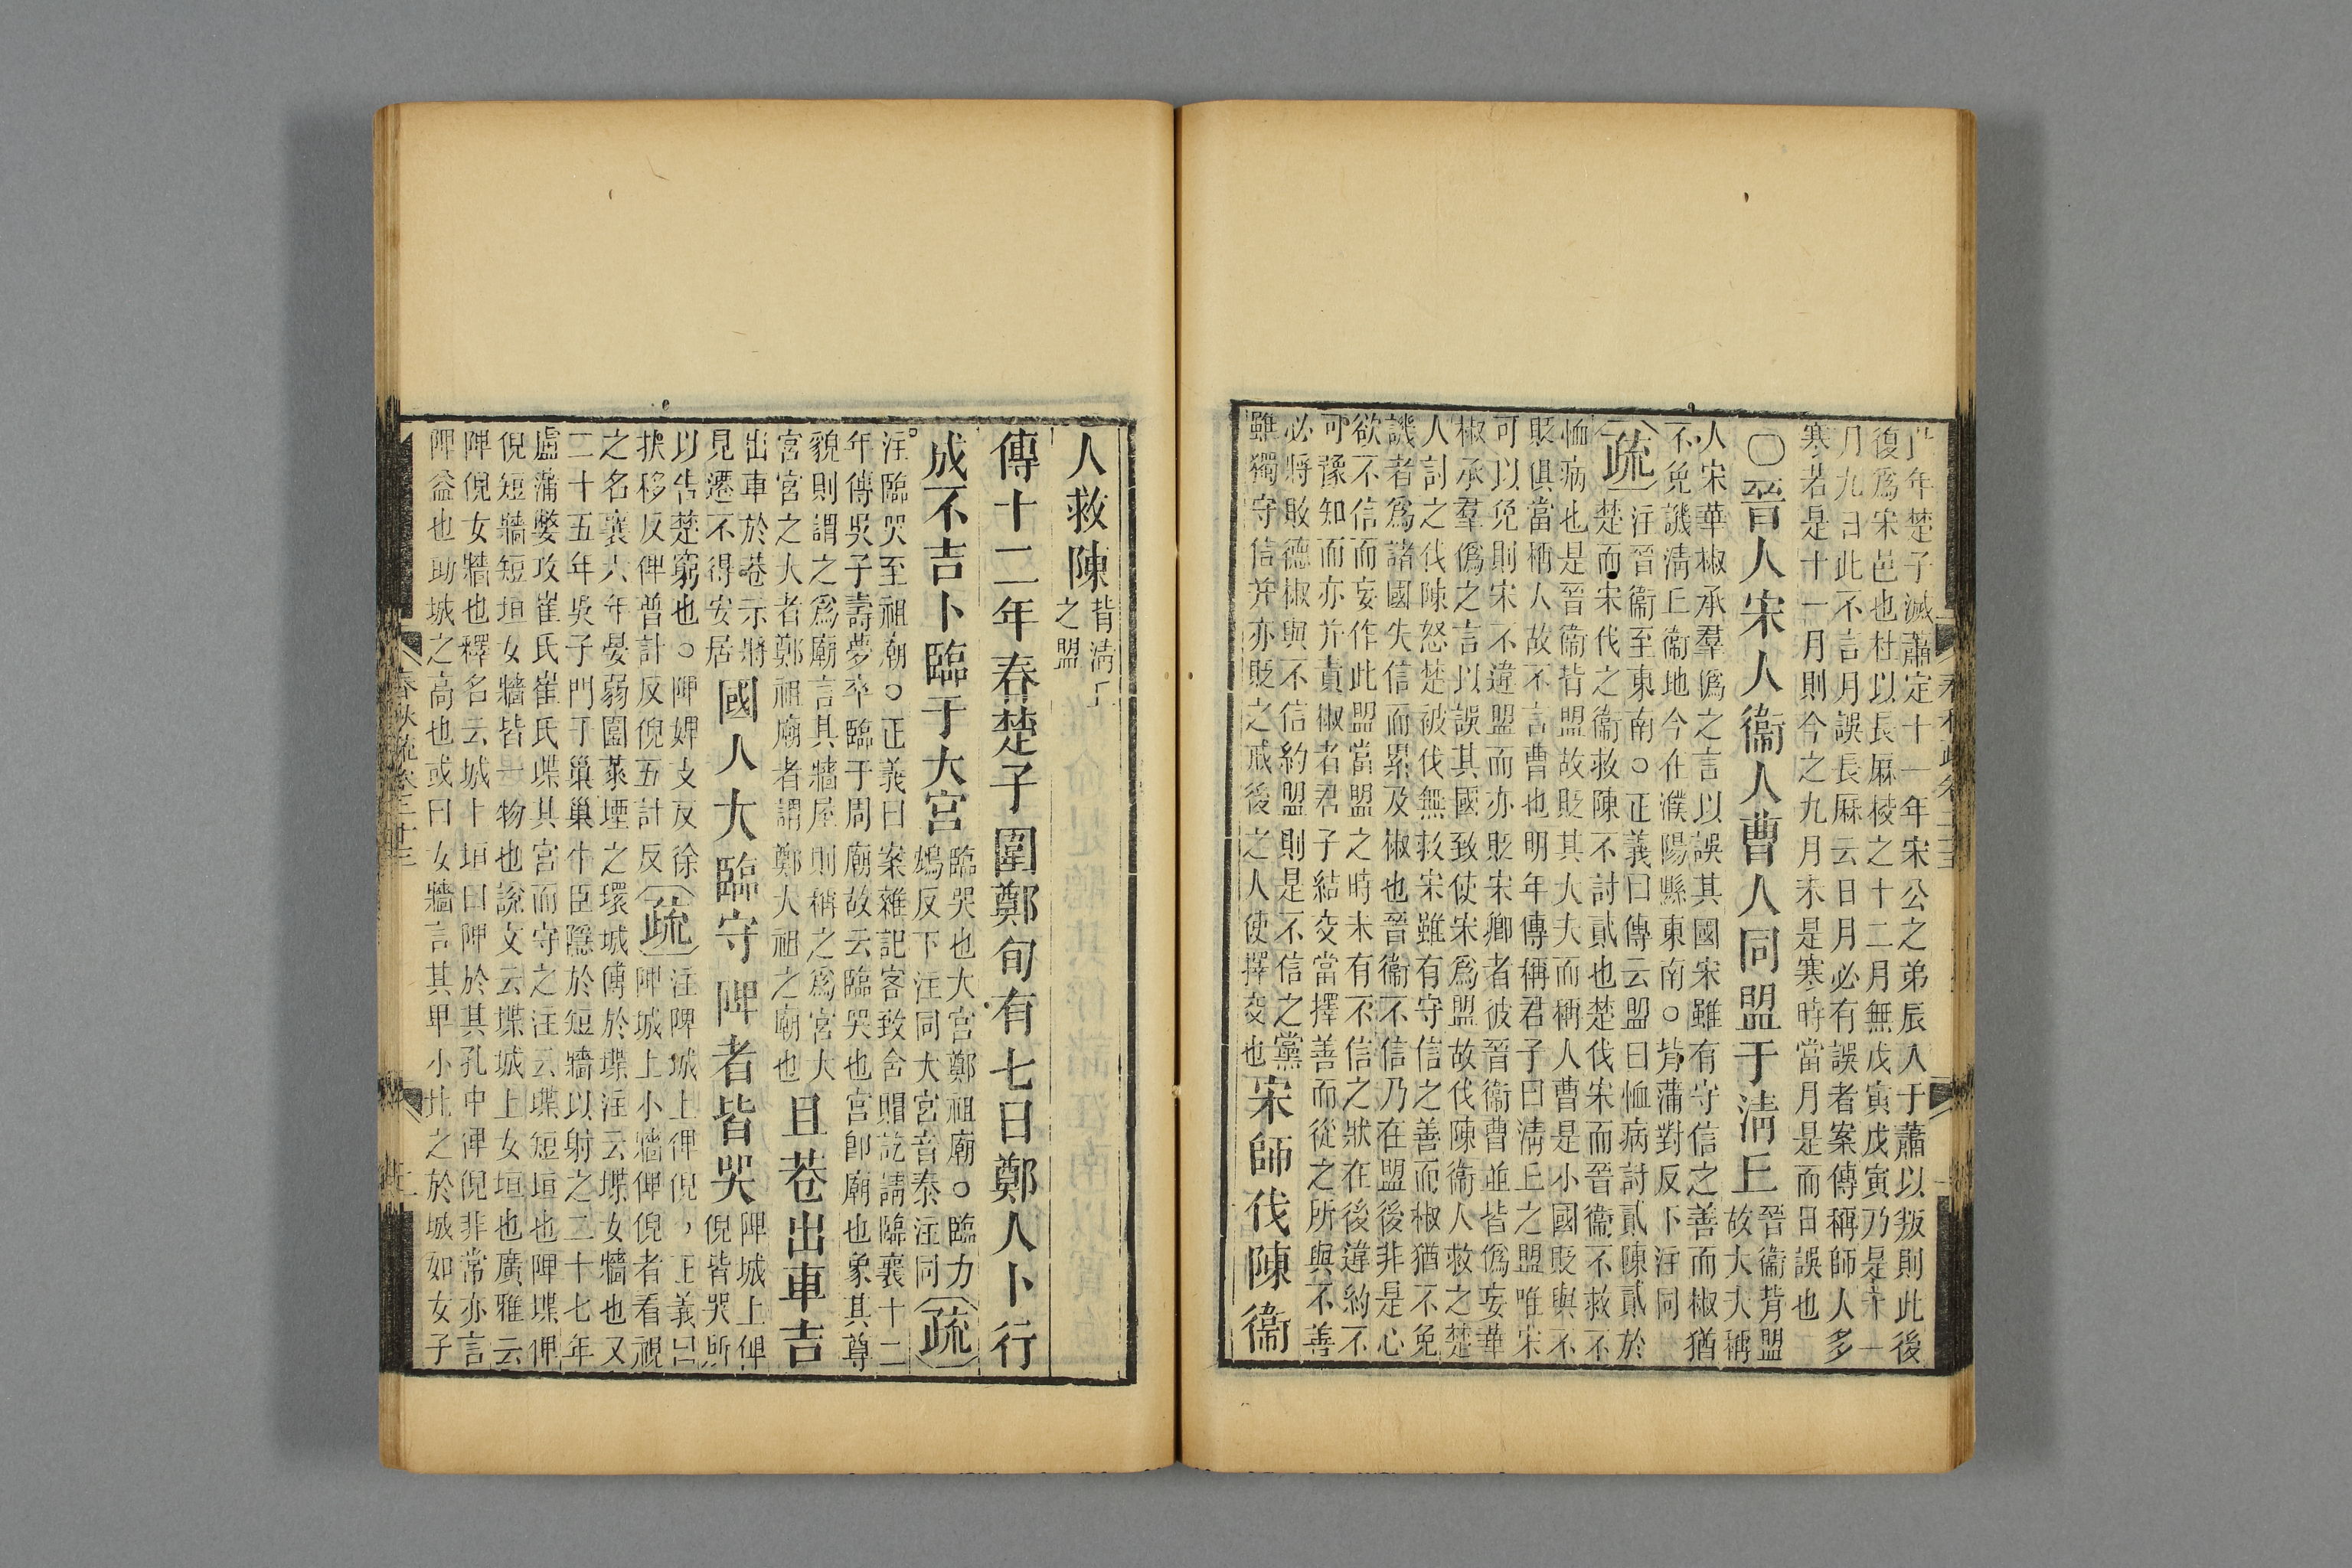 年楚子滅蕭定十一年宋公之弟辰入于蕭以叛則此後
復爲宋邑也杜以長厤校之十二月無戊寅戊寅乃是十一
月九日此不言月誤長厤云日月必有誤者案傳稱師人多
寒若是十一月則今之九月未是寒時當月是而日誤也
〇晉人宋人衞人曹人同盟于淸丘晉衞背盟
故大夫稱
人宋華椒承羣僞之言以誤其國宋雖有守信之善而椒猶
不免譏淸丘衞地今在濮陽縣東南○背蒲對反下注同
疏注晉衞至東南○正義曰傳云盟曰恤病討貳陳貳於
楚而宋伐之衞救陳不討貳也楚伐宋而晉衞不救不
恤病也是晉衞背盟故貶其大夫而稱人曹是小國貶與不
貶俱當稱人故不言曹也明年傳稱君子曰淸丘之盟唯宋
可以免則宋不違盟而亦貶宋卿者彼晉衞曹並皆僞妄華
椒承羣僞之言以誤其國致使宋爲盟故伐陳衞人救之楚
人討之伐陳怒楚被伐無救宋雖有守信之善而椒猶不免
譏者爲諸國失信而累及椒也晉衞不信乃在盟後非是心
欲不信而妄作此盟當盟之時未有不信之狀在後違約不
可豫知而亦并責椒者君子結交當擇善而從之所與不善
必將敗德椒與不信約盟則是不信之黨
雖獨守信并亦貶之戒後之人使擇交也宋師伐陳衞
人救陳背淸丘
之盟
傳十二年春楚子圍鄭旬有七日鄭人卜行
成不吉卜臨于大宮臨哭也大宮鄭祖廟○臨力
鴆反下注同大宮音泰注同疏
注臨哭至祖廟○正義曰案雜記客致含賵訖請臨襄十二
年傳吳子壽夢卒臨于周廟故云臨哭也宮卽廟也象其尊
貌則謂之爲廟言其牆屋則稱之爲宮大
宮宮之大者鄭祖廟者謂鄭大祖之廟也且巷出車吉
出車於巷示將
見遷不得安居國人大臨守陴者皆哭陴城上俾
倪皆哭所
以告楚窮也○陴婢支反徐
扶移反俾普計反倪五計反疏注陴城上俾倪○正義曰
陴城上小牆俾倪者看視
之名襄六年晏弱圍萊堙之環城傅於堞注云堞女牆也又
二十五年吳子門于巢巢牛臣隱於短牆以射之二十七年
盧蒲嫳攻崔氏崔氏堞其宮而守之注云堞短垣也陴堞俾
倪短牆短垣女牆皆一物也說文云堞城上女垣也廣雅云
陴倪女牆也釋名云城上垣曰陴於其孔中俾倪非常亦言
陴益也助城之高也或曰女牆言其卑小比之於城如女子